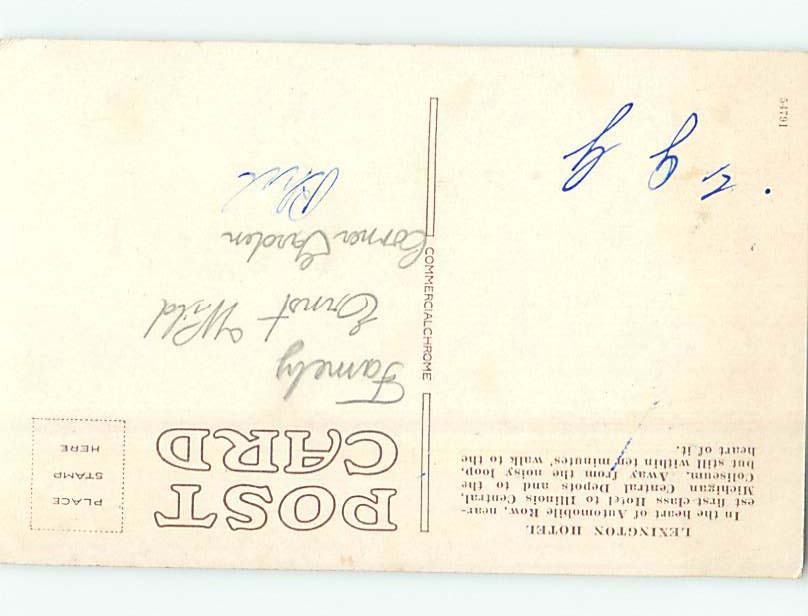 LEXINGTON HOTEL
In the heart of Automobile Row, near-
est first-class Hotel to Illinois Central,
Michigan Central Depots and to the
Coliseum. Away from the noisy loop,
but still within ten minutes' walk to the
heart of it.
54791
COMMERCIALCHROME
POST
CARD
PLACE
STAMP
HERE
Famely
Ernst Wild
Corner Garden